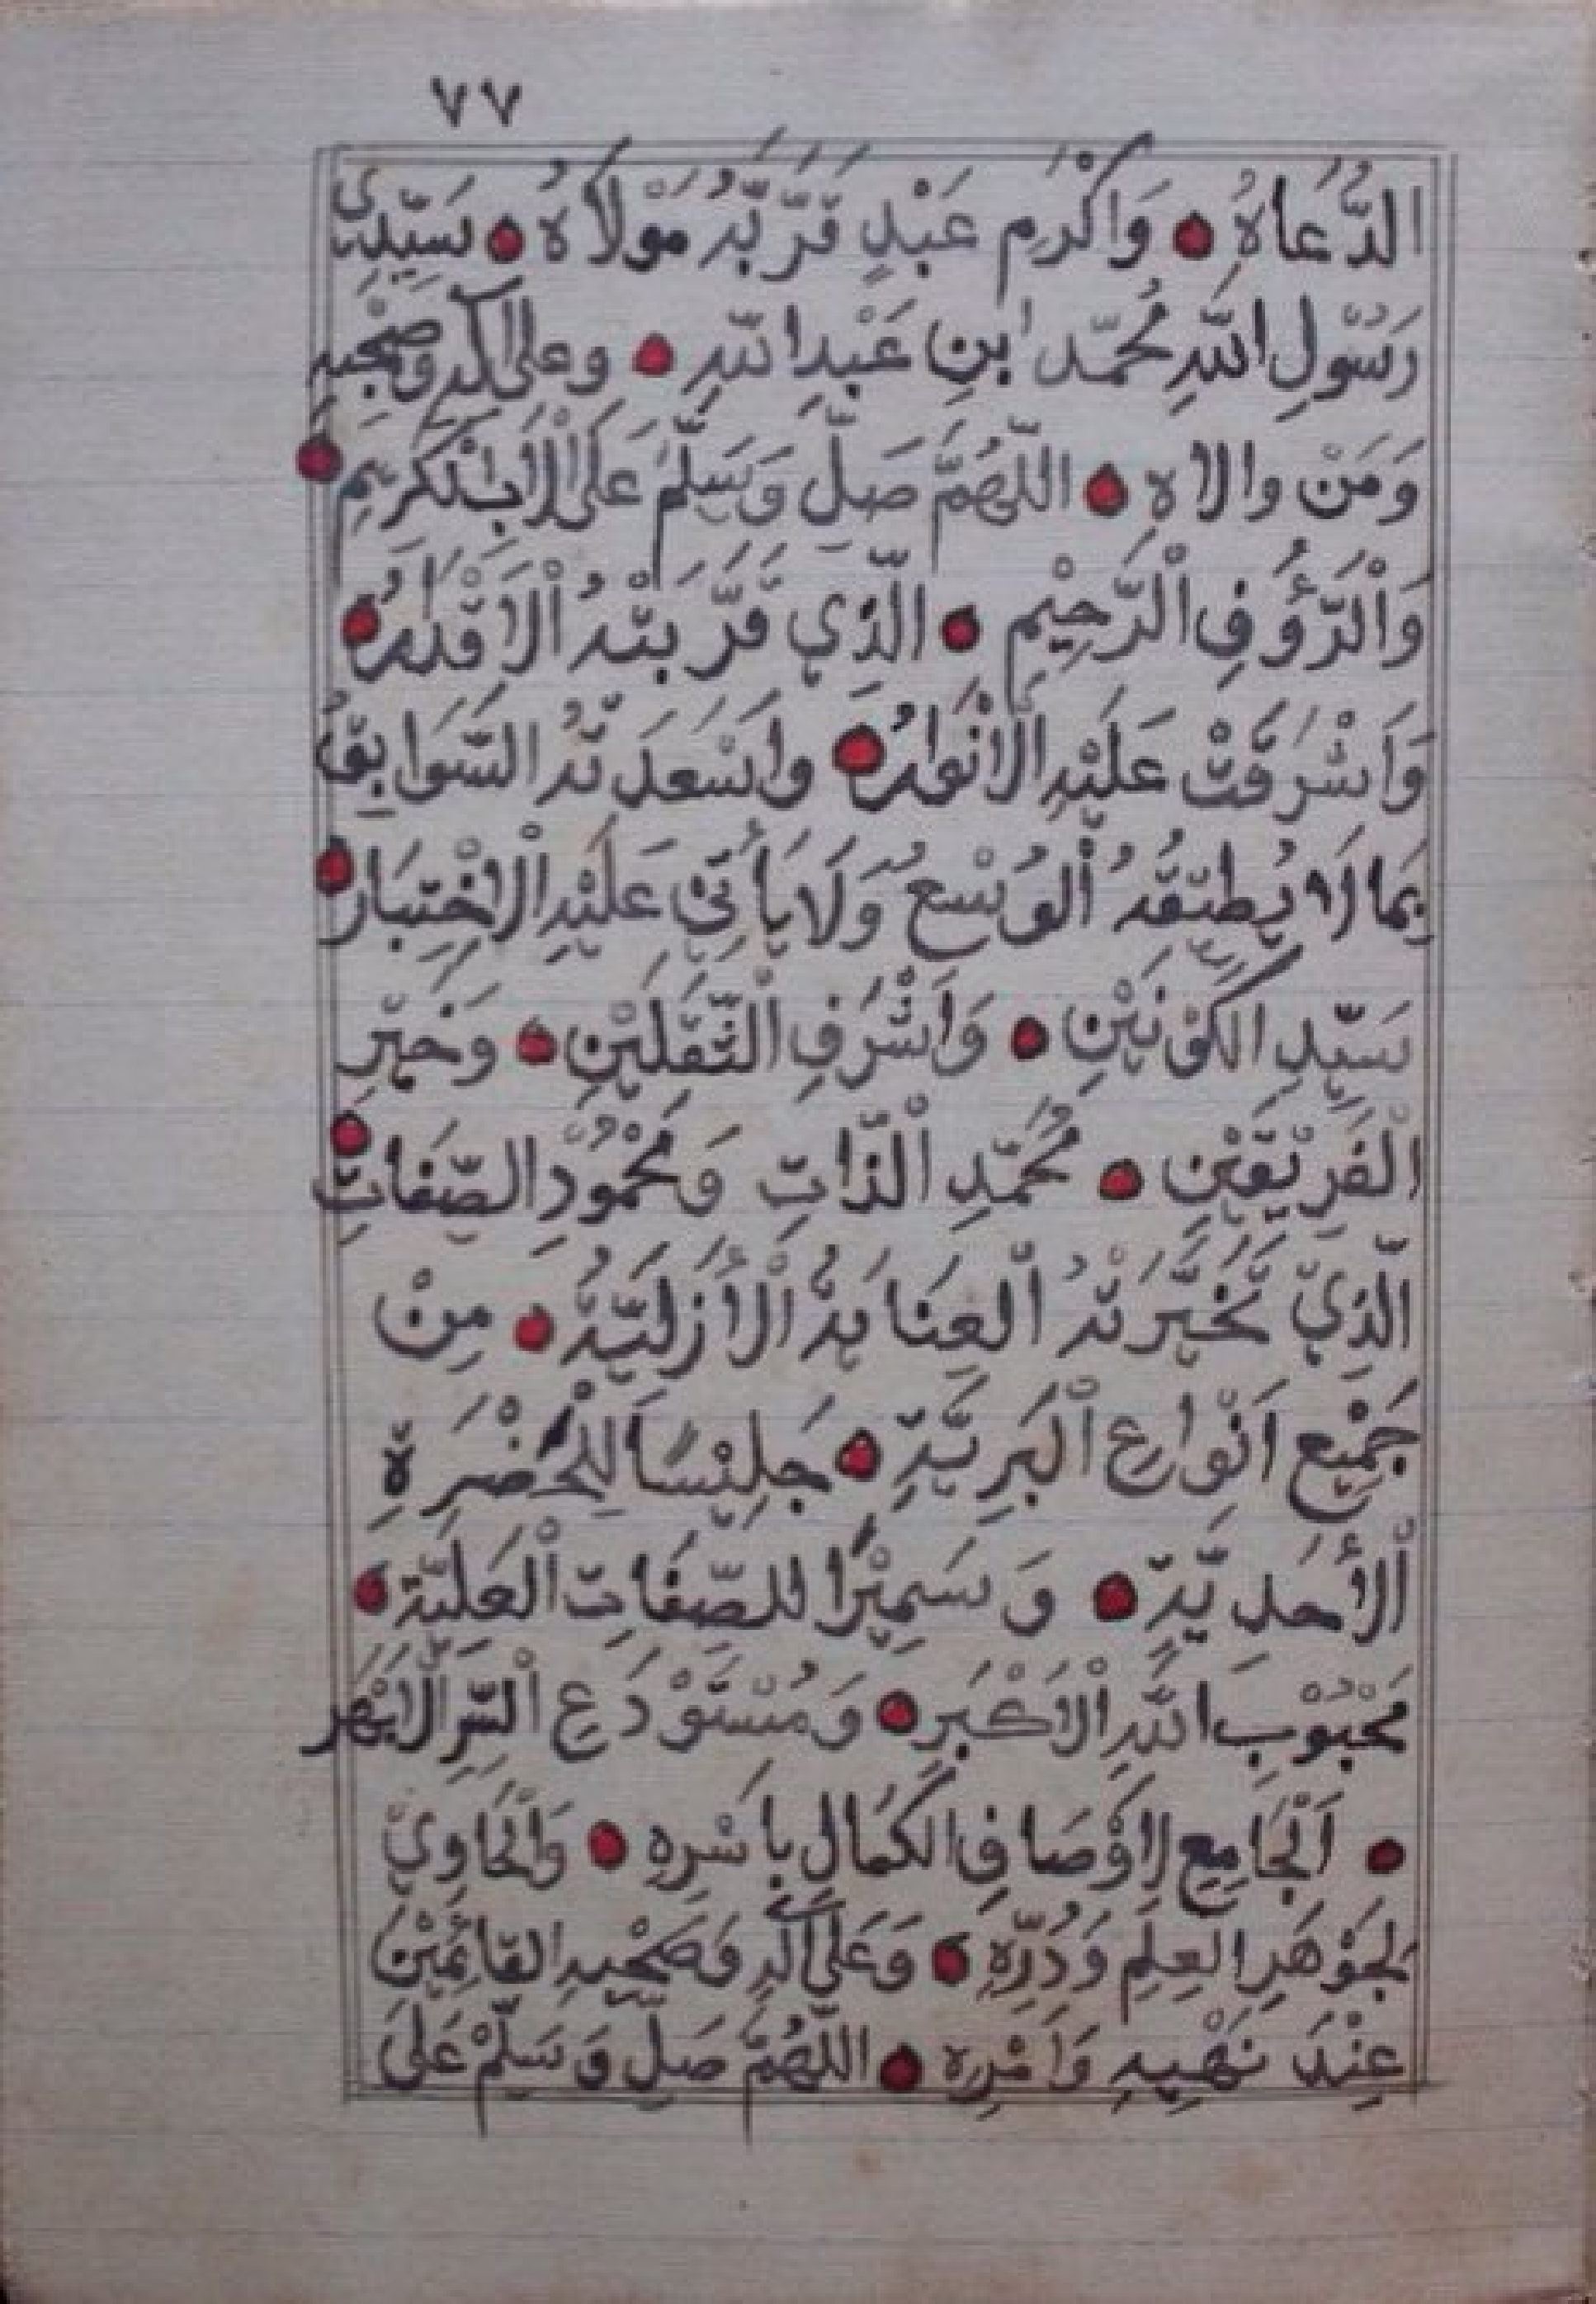 ٧٧
الدُّعَاهُ • وَاَكْرَمِ عَبْدٍ قَرَّبَهُ مَوْلَاهُ • سَيِّدِي
رَسُوْلِ اللهِ مُحَمَّد ابنِ عَبْدِ اللهِ • وعلى اله وَصَحْبِهِ
وَمَنْ والاه • اللّٰهُمَّ صَلِّ وَسَلِّمْ عَلَى الْاَبِ الْكَرِيْمِ •
وَالْرَّؤُوفِ الْرَّحِيْمِ • الَّذِي قَرَّبَتْهُ الْاَقْدَارُ •
وَاَشْرَقَتْ عَلَيْهِ الْاَنْوَارُ • واَسْعَدَتْهُ السَّوَابِقُ
بِمَا لَا يُطِيْقُهُ الْوُسْعُ وَلَا يَأْتِيْ عَلَيْهِ الْاِخْتِبَار •
سَيِّدِ الكَوْنَيْنِ • وَاَشْرَفِ الْثَّقَلَيْنِ • وَخَيْرِ
الْفَرِيْقَيْنِ • مُحَمَّدِ الْذَّاتِ وَمَحْمُوْدِ الصِّفَاتِ •
الَّذِيْ تَخَيَّرَتْهُ الْعِنَايَةُ الْأَزَلِيَّةُ • مِنْ
جَمِيْعِ اَنْوَاعِ الْبَرِيَّةِ • جَلِيْسًا لِلْحَضْرَةِ
الْأَحَدِيَّةِ • وَسَمِيْرًا للصِّفَاتِ الْعَلِيَّة •
مَحْبُوْبِ اللهِ الْاَكْبَرِ • وَمُسْتَوْدَعِ الْسِّرِّ الْاَبْهَر
• اَلْجَامِعِ لِاَوْصَافِ الكَمَالِ بِاَسْرِهِ • وَالْحَاوِيْ
لِجَوْهَرِ العِلْمِ وَدُرِّهِ • وَعَلَى آلِهِ وَصَحْبِهِ القَائِمِيْنَ
عِنْدَ نَهْيِهِ وَاَمْرِه • اللّٰهُمَّ صَلِّ وَسَلِّمْ عَلَى